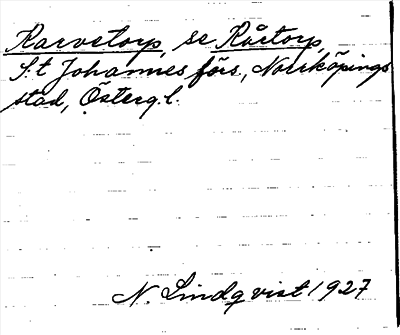 Rarvetorp, se Råtorp,
S:t Johannes förs., Norrköpings
stad, Österg.l.
N. Lindqvist 1927